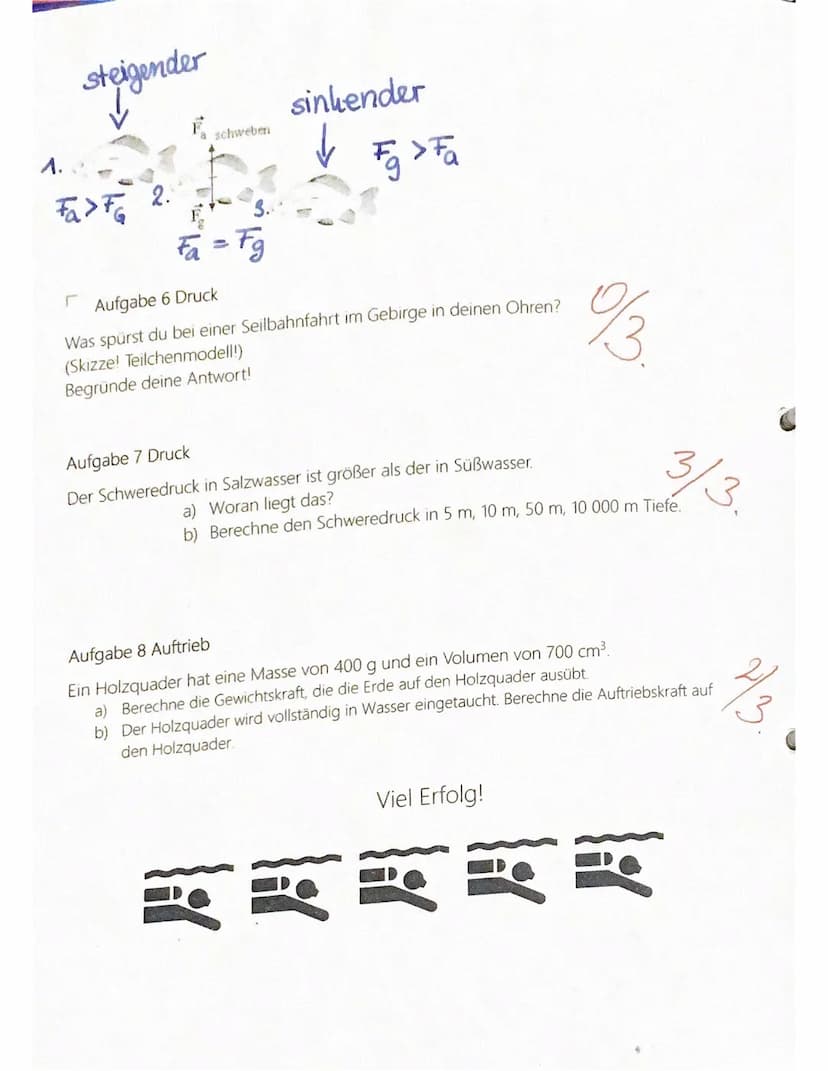 steigender
sinkender
F a schweben
1.
Fg > Fa
Fa > FG
2.
F g
3.
Fa = Fg
Aufgabe 6 Druck
Was spürst du bei einer Seilbahnfahrt im Gebirge in deinen Ohren?
(Skizze! Teilchenmodell!)
Begründe deine Antwort!
0/3.
Aufgabe 7 Druck
Der Schweredruck in Salzwasser ist größer als der in Süßwasser.
a) Woran liegt das?
b) Berechne den Schweredruck in 5 m, 10 m, 50 m, 10 000 m Tiefe.
3/3.
Aufgabe 8 Auftrieb
Ein Holzquader hat eine Masse von 400 g und ein Volumen von 700 cm³.
a) Berechne die Gewichtskraft, die die Erde auf den Holzquader ausübt.
b) Der Holzquader wird vollständig in Wasser eingetaucht. Berechne die Auftriebskraft auf
den Holzquader.
2/3.
Viel Erfolg!